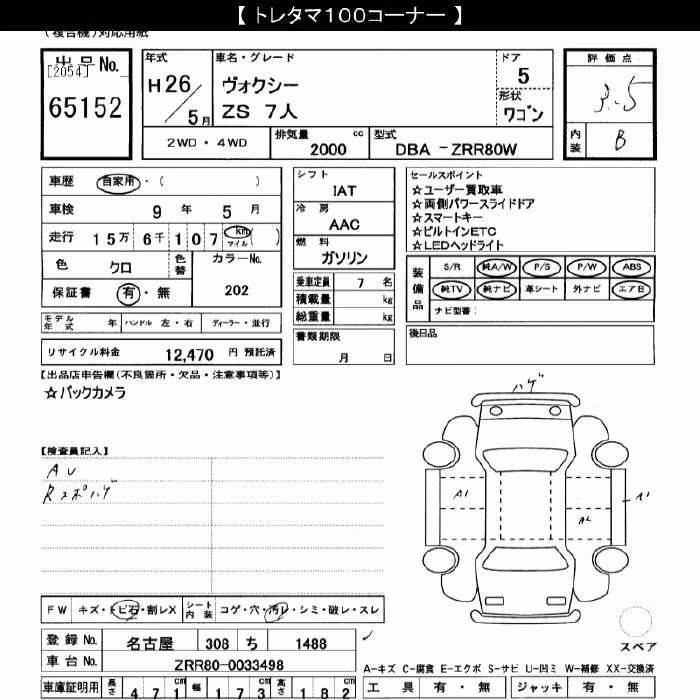 【 トレタマ100コーナー 】
(複合機)対応用紙
出品No.
[2054]
65152
年式
H26/5月
車名・グレード
ヴォクシー
ZS 7人
ドア
5
形状
ワゴン
評価点
3.5
内装
B
2WD・4WD
排気量 cc
2000
型式
DBA -ZRR80W
車歴 自家用・( )
車検 9年 5月
走行 15万 6千107 km マイル ( )
色 クロ
色替
カラーNo.
202
保証書 有・無
シフト
IAT
冷房
AAC
燃料
ガソリン
乗車定員 7 名
積載量 kg
総重量 kg
書類期限
月 日
セールスポイント
☆ユーザー買取車
☆両側パワースライドドア
☆スマートキー
☆ビルトインETC
☆LEDヘッドライト
装備品
S/R 純A/W P/S P/W ABS
純TV 純ナビ 革シート 外ナビ エアB
ナビ型番:
後日品
モデル年式 年 ハンドル 左・右 ディーラー・並行
リサイクル料金 12,470 円 預託済
【出品店申告欄(不良箇所・欠品・注意事項等)】
☆バックカメラ
【検査員記入】
AU
Rスポハゲ
ハゲ
A1
A2
A1
スペア
FW キズ・トビ石・割レX シート内装 コゲ・穴・汚レ・シミ・破レ・スレ
登録No. 名古屋 308 ち 1488
車台No. ZRR80-0033498
A-キズ C-腐食 E-エクボ S-サビ U-凹ミ W-補修 XX-交換済
車庫証明用 長さ 471cm 幅 173cm 高さ 182cm
工具 有・無 ジャッキ 有・無